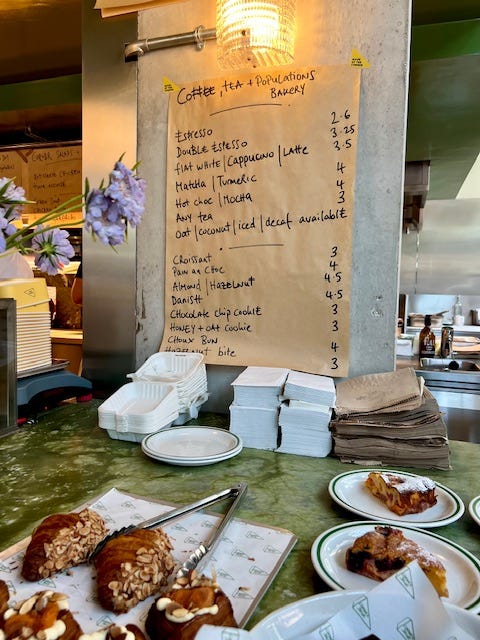 COFFEE, TEA + POPULATIONS
BAKERY
Espresso 2.6
Double Espesso 3.25
flat white | Cappucino | Latte 3.5
Matcha | Tumeric 4
Hot choc | Mocha 4
Any tea 3
Oat | coconut | iced | decaf available
Croissant 3
Pain au Choc 4
Almond | Hazelnut 4.5
Danish 4.5
Chocolate chip cookie 3
Honey + oat cookie 3
Choux Bun 4
Hazelnut bite 3